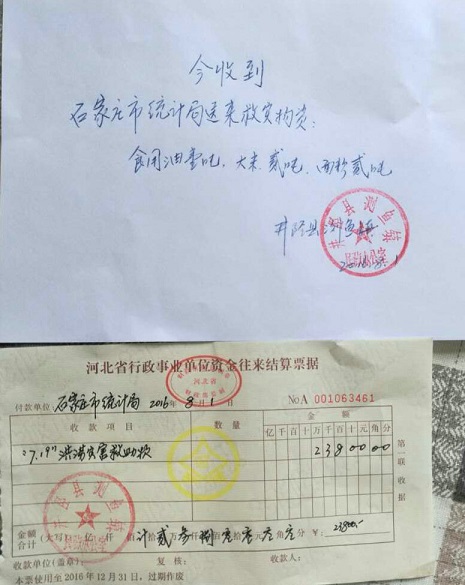 今收到
石家庄市统计局送来救灾物资:
食用油壹吨,大米贰吨,面粉贰吨
井陉县测鱼镇
井陉县测鱼镇
2016.8.1
河北省行政事业单位资金往来结算票据
河北省
付款单位 石家庄市统计局 2016年8月1日 No A 001063461
收款项目 数量 金额
亿千百十万千百十元角分
"7.19"洪涝灾害救助款 2380000
第一联 收据
井陉县测鱼镇
金额合计(大写) 亿 仟 佰 拾贰万叁仟捌佰零拾零元零角零分 ¥: 23800-
收款单位(盖章): 复核: 收款人:
本票使用至2016年12月31日,过期作废